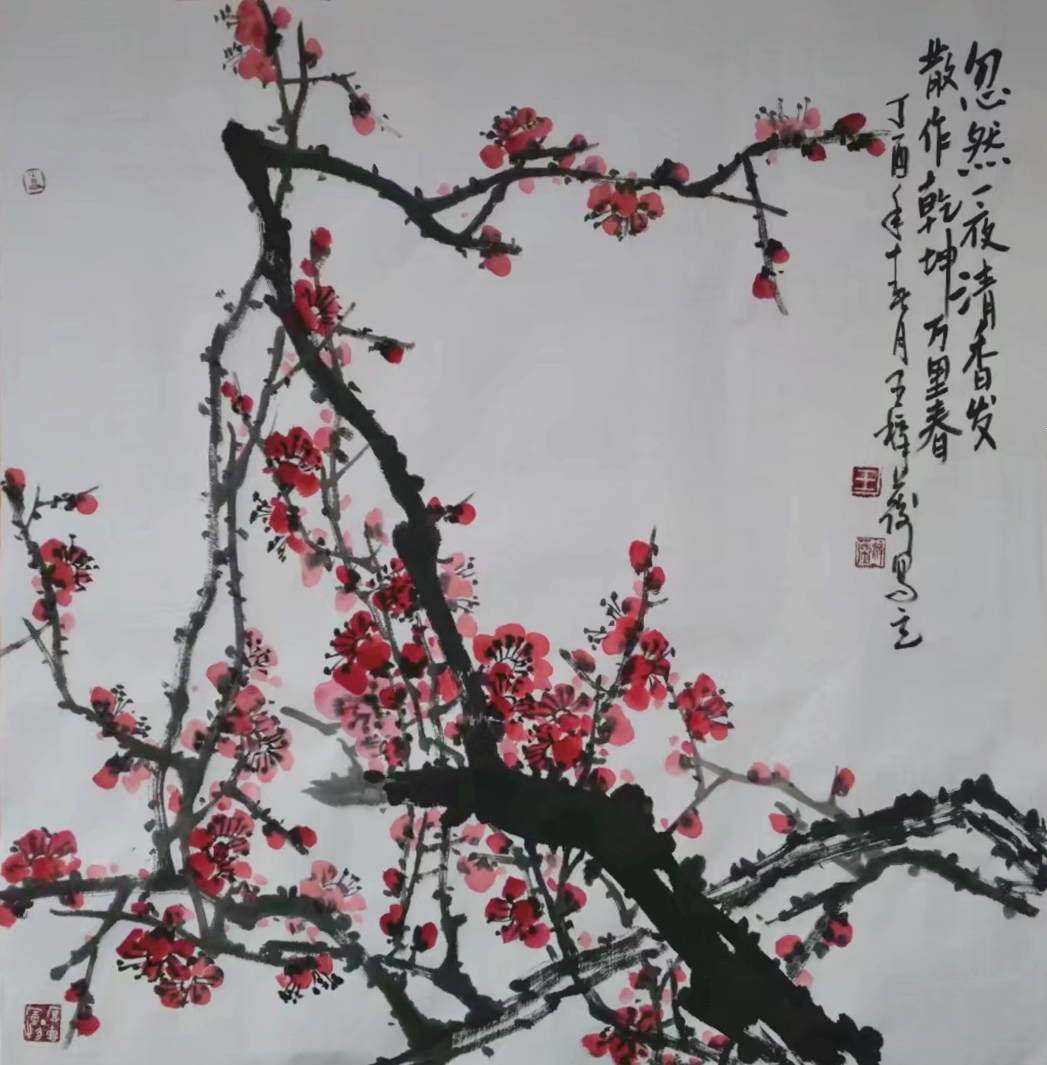 忽然一夜清香发
散作乾坤万里春
丁酉年十一月王梓
王